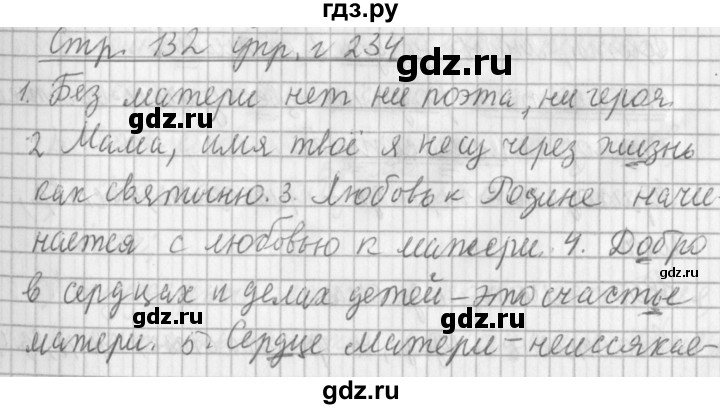 гдз.ру
Стр. 132 упр. г 234
gdz.ru
1. Без матери нет ни поэта, ни героя.
gdz.ru gdz.ru
2 Мама, имя твоё я несу через жизнь
как святыню. 3. Любовь к Родине начи-
gdz.ru
нается с любовью к матери. 4. Добро
gdz.ru
в сердцах и делах детей – это счастье
gdz.ru gdz.ru
матери. 5. Сердце матери – неиссякае-
gdz.ru